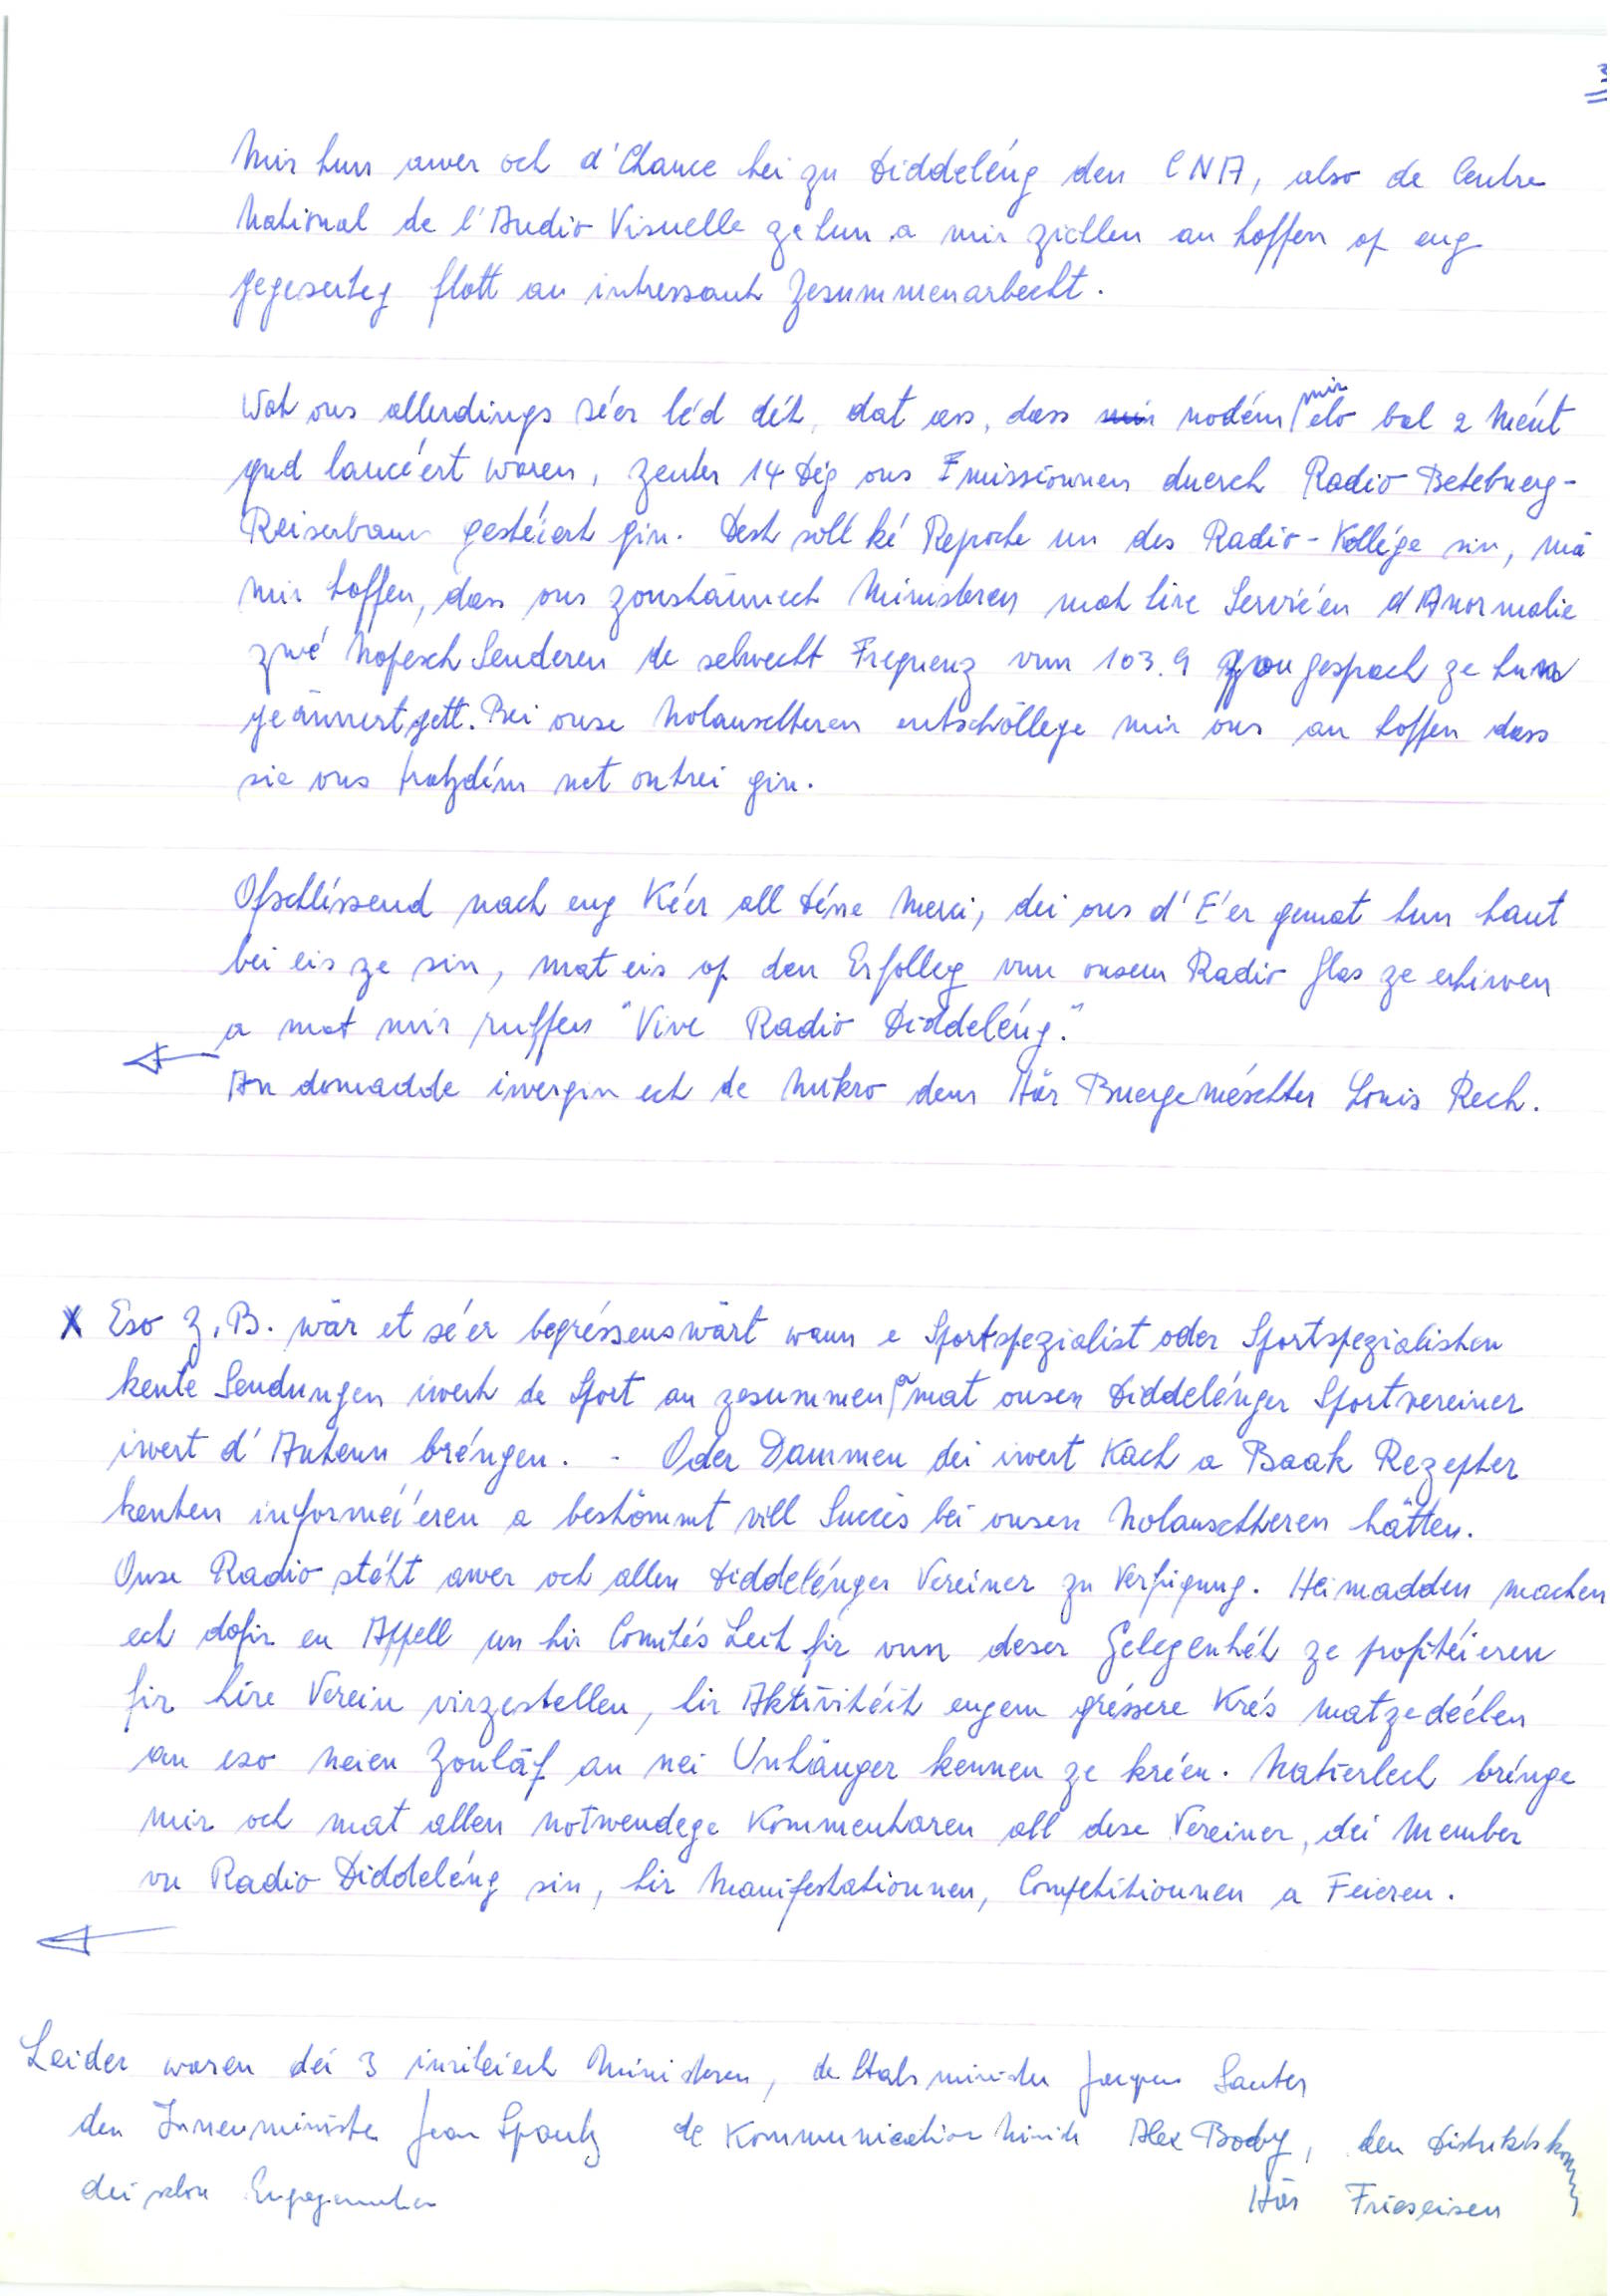 3
Mir hun awer och d'Chance hei zu Diddeléng den CNA, also de Centre
National de l'Audio Visuelle ze hun a mir ziellen an hoffen op eng
gegeseiteg flott an intressant Zesummenarbecht.
Wat ons allerdings séer léd dét, dat ass, dass nodém mir elo bal 2 Mént
gud lancéert waren, zenter 14 Dég ons Emissiounen duerch Radio Beteburg-
Reiserbann gestéiert gin. Dest soll ké Reproche un des Radio-Kollége sin, mä
mir hoffen, dass ons zoustännech Ministeren mat hire Servicéen d'Anormalie
zwé Nopesch Senderen de selwecht Frequenz vun 103.9 zougesprach ze hun
geännert gett. Bei onse Nolauschteren entschöllege mir ons an hoffen dass
sie ons trotzdém net ontrei gin.
Ofschléssend nach eng Kéer all Dénne Merci, dei ons d'E'er gemat hun haut
bei eis ze sin, mat eis op den Erfolleg vun onsem Radio Glas ze erhiewen
a mat mir ruffen "Vive Radio Diddeléng."
An domadde iwergin ech de Mikro dem Här Buergeméschter Louis Rech.
X Eso z.B. wär et séer begréssenswärt wann e Sportspezialist oder Sportspezialisten
kente Sendungen iwert de Sport an zesummen mat onsen Diddelénger Sportvereiner
iwert d'Antenn bréngen. - Oder Dammen dei iwert Kach a Baak Rezepter
kenten informéi'eren a bestömmt vill Succès bei onsen Nolauschteren hätten.
Onse Radio stéht awer och allen Diddelénger Vereiner zu Verfügung. Heimadden machen
ech dofir en Appell un hir Comités Leit fir vun deser Gelegenhét ze profitéieren
fir hire Verein virzestellen, hir Aktivitéit engem gréssere Krés matzedéelen
an eso neien Zouläf an nei Unhänger kennen ze kréen. Natierlech brénge
mir och mat allen notwendege Kommentaren all dese Vereiner, déi Member
vu Radio Diddeléng sin, hir Manifestatiounen, Competitiounen a Feieren.
Leider waren déi 3 invitéiert Ministeren, de Statsminister Jacques Santer
den Innenminister Jean Spautz de Kommunication Minister Alex Bodry, den Distriktskomm
déi schon Engagementer Här Frieseisen